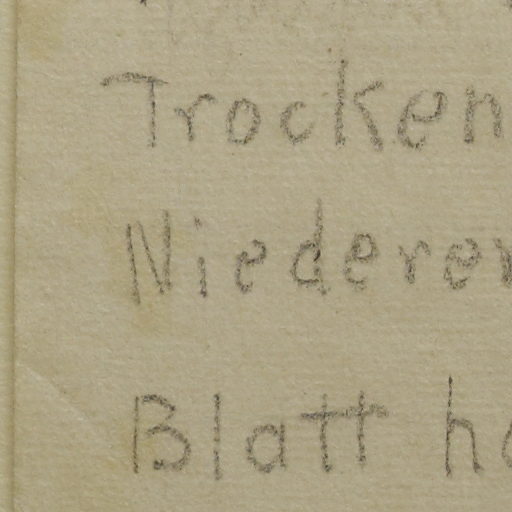 Trocken
Niederer
Blatt ha